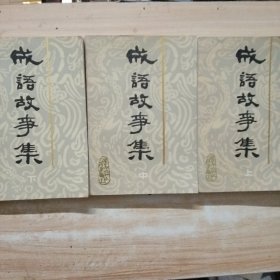 成語故事集
下
成語故事集
中
成語故事集
上